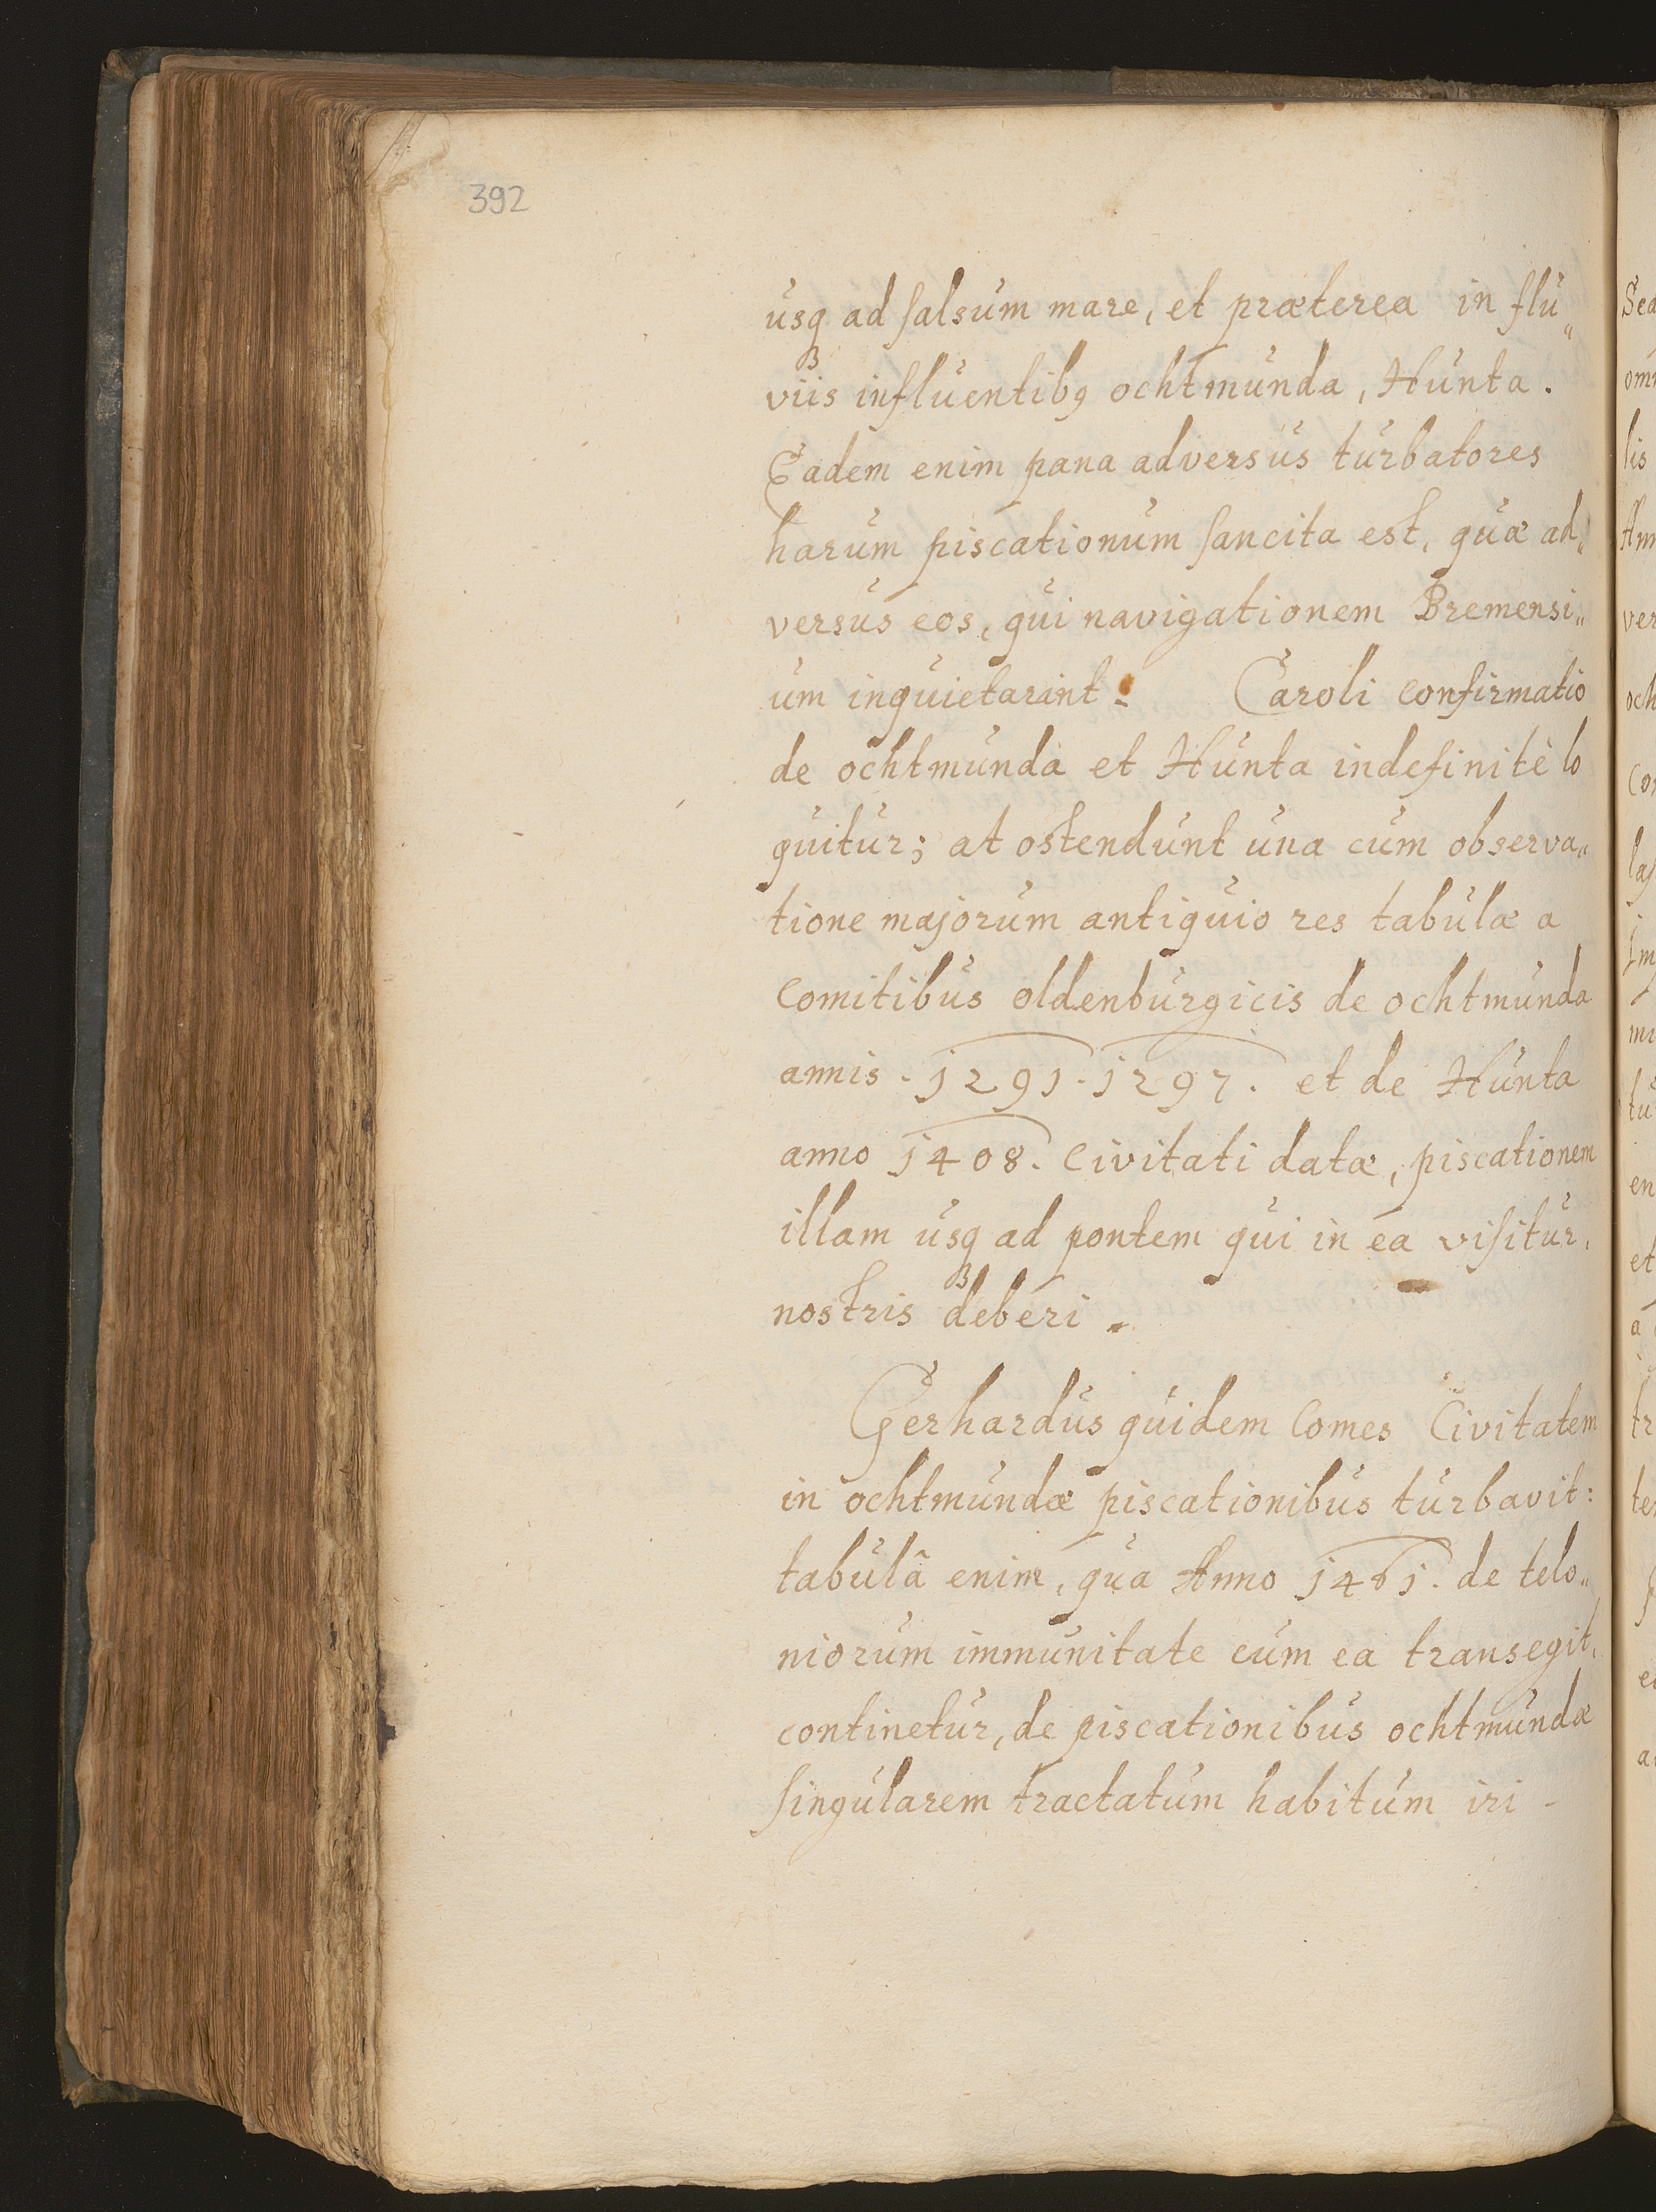 392
usqꝫ ad salsum mare, et præterea in flu„
viis influentibꝰ ochtmunda, Hunta.
Eadem enim pana adversus turbatores
harum piscationum sancita est, quæ ad„
versus eos, qui navigationem Bremensi„
um inquietarint. Caroli confirmatio
de ochtmunda et Hunta indefinitè lo
quitur; at ostendunt una cum observa„
tione majorum antiquio res tabulæ a
Comitibus oldenburgicis de ochtmunda
annis. 1291. 1297. et de Hunta
anno 1408. Civitati datæ, piscationem
illam usqꝫ ad pontem qui in ea visitur,
nostris deberi.
Gerhardus quidem Comes Civitatem
in ochtmundæ piscationibus turbavit:
tabulâ enim, qua Anno 1461. de telo„
niorum immunitate cum ea transegit,
continetur, de piscationibus ochtmundæ
singularem tractatum habitum iri -